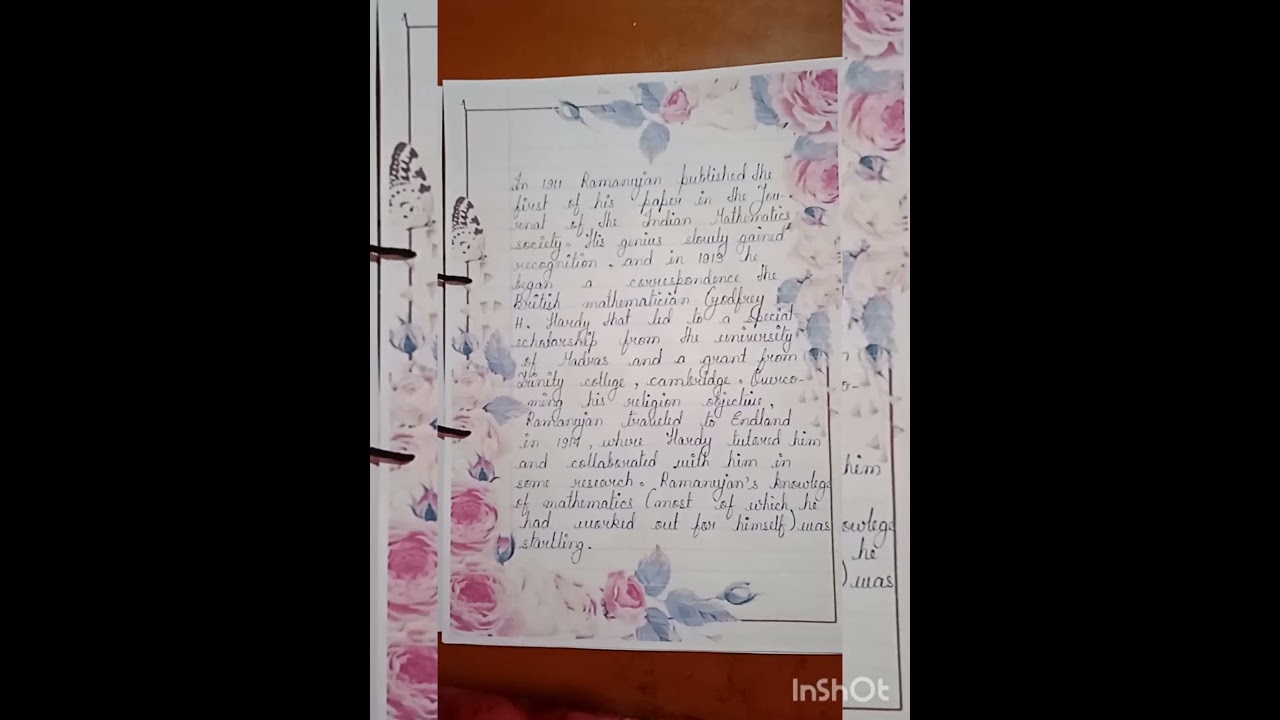 In 1911 Ramanujan published the
first of his paper in the Jou-
rnal of the Indian Mathematics
society. His genius slowly gained
recognition, and in 1913 he
began a correspondence the
British mathematician Godfrey
H. Hardy that led to a special
scholarship from the university
of Madras and a grant from
Trinity college, cambridge. Overco-
ming his religion objective,
Ramanujan traveled to Endland
in 1914, where Hardy tutored him
and collaborated with him in
some research. Ramanujan's knowlege
of mathematics (most of which he
had worked out for himself) was
startling.
o-
him
owlege
he
) was
InShOt